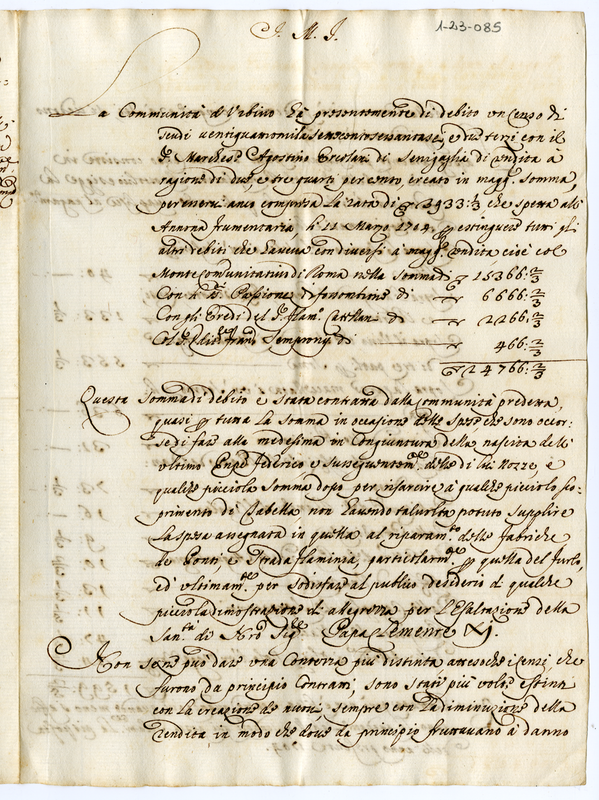 J. M. J.
1-23-085
La Communità d'Urbino hà presentemente di debito un Censo di
scudi ventiquattromila settecento sessantasei, e due terzi con il
Sr. Marchese Agostino Grerlani di Senigaglia di rendita à
ragione di due, e tre quarti per cento, creato in magg. somma,
per esservi anco compresa la rata di 2933:1/3 che spetta all'
Annona frumentaria li 11 Marzo 1714 estinguere tutti gli
altri debiti che haveva con diversi à magg. rendita cioè col
Monte Comunitativo di Roma nella somma di 15366:2/3
Con li Passione di 6666:2/3
Con gli Eredi del Sr. di 2266:2/3
Col Franc. Sempronj di 466:2/3
24766:2/3
Questa somma di debito è stata contratta dalla Communità predetta,
quasi tutta la somma in occasione delle spese che sono occor:
se di fare alla medesima in Congiuntura della nascita dell'
ultimo Federico e susseguentem.te delle di lui Nozze, e
qualche picciola somma dopo per risarcire à qualche picciolo sco:
primento di Tabella non havendo talvolta potuto supplire
la spesa assegnata in quella al riparam.to delle fabriche
de Ponti e Strada flaminia, particolarm.te quella del Furlo,
ed ultimam.te per sodisfare al publico desiderio di qualche
picciola dimostrazione di allegrezza per l'Esaltazione della
San.tà di N'ro Sig.re Papa Clemente XI.
Non se ne può dare una Contezza più distinta attesoche i Censi, che
furono da principio Contratti, sono stati più volte estinti
con la creazione de nuovi sempre con la diminuzione della
rendita in modo che dove da principio fruttavano à danno